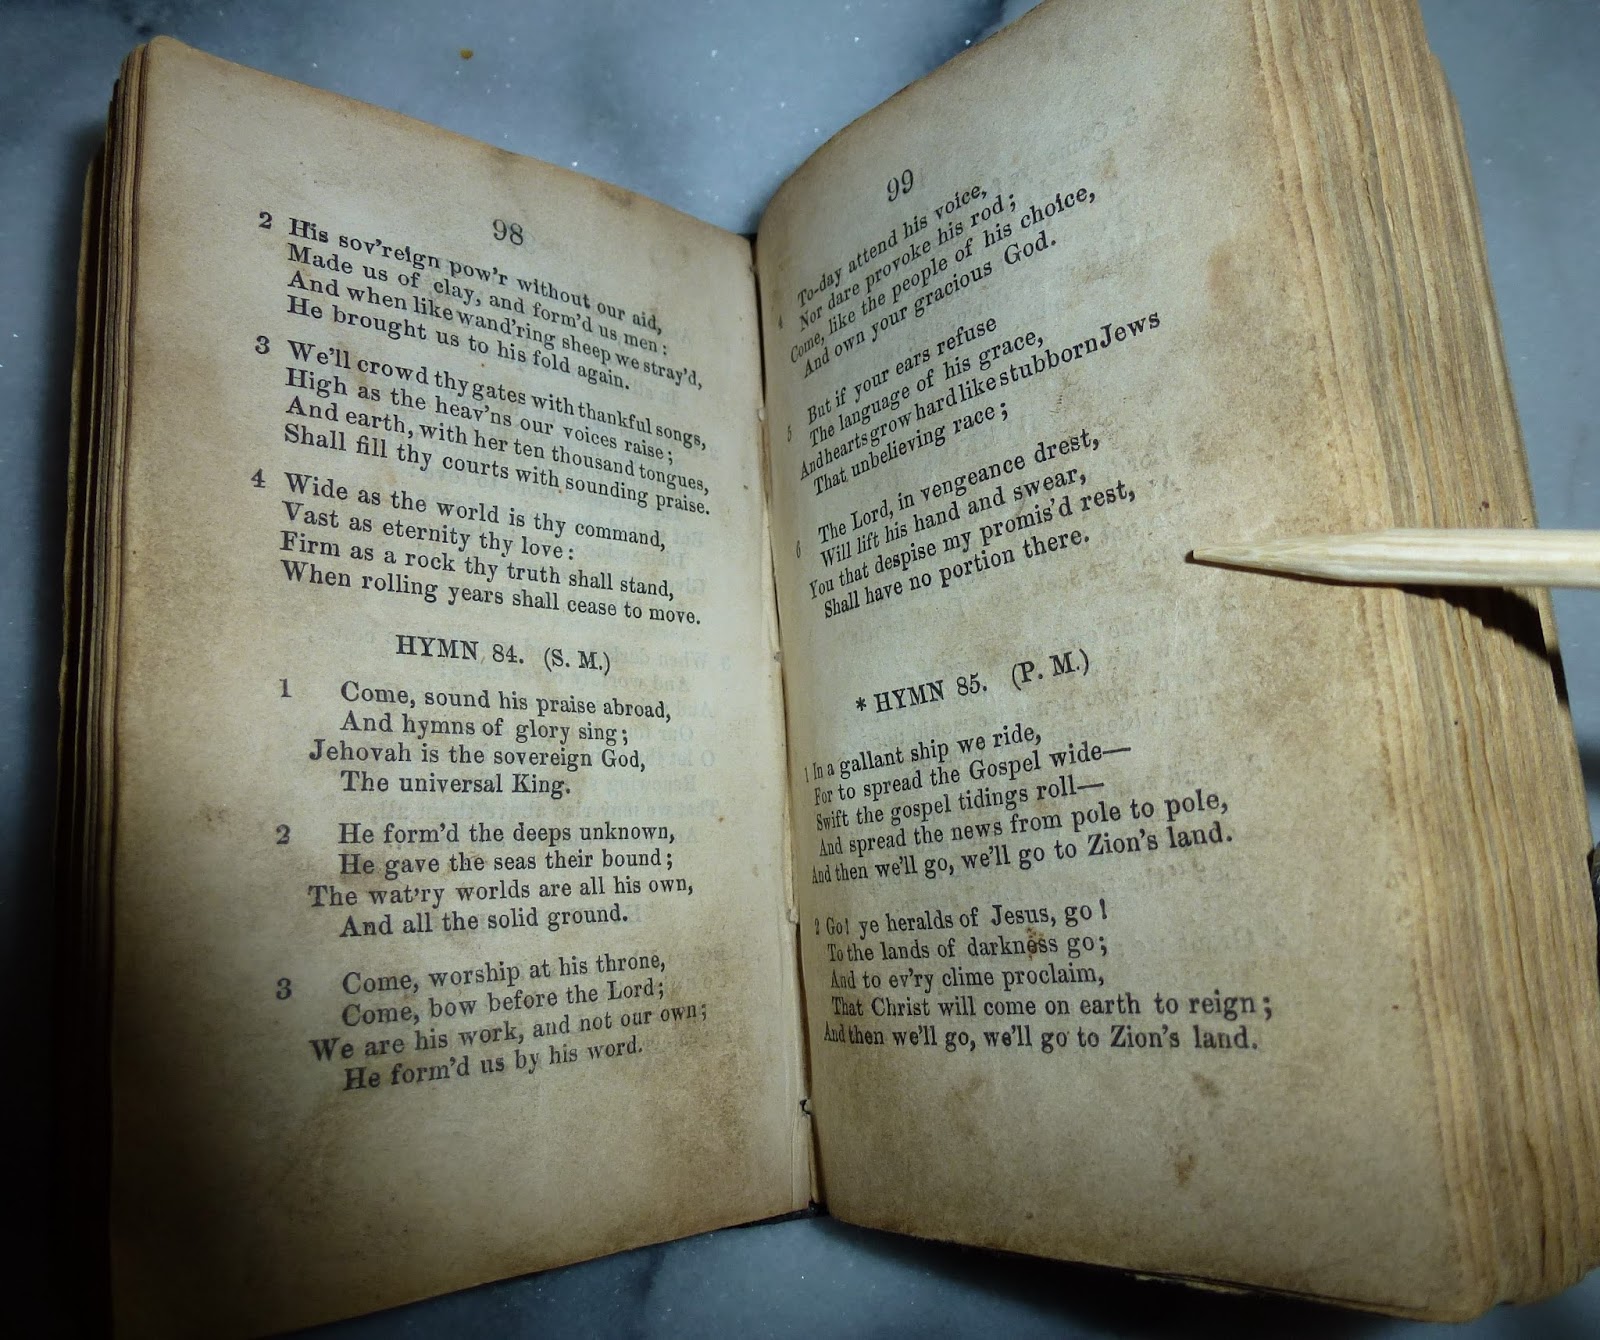 98
2 His sov'reign pow'r without our aid,
Made us of clay, and form'd us men:
And when like wand'ring sheep we stray'd,
He brought us to his fold again.
3 We'll crowd thy gates with thankful songs,
High as the heav'ns our voices raise;
And earth, with her ten thousand tongues,
Shall fill thy courts with sounding praise.
4 Wide as the world is thy command,
Vast as eternity thy love:
Firm as a rock thy truth shall stand,
When rolling years shall cease to move.
HYMN 84. (S. M.)
1 Come, sound his praise abroad,
And hymns of glory sing;
Jehovah is the sovereign God,
The universal King.
2 He form'd the deeps unknown,
He gave the seas their bound;
The wat'ry worlds are all his own,
And all the solid ground.
3 Come, worship at his throne,
Come, bow before the Lord;
We are his work, and not our own;
He form'd us by his word.
99
4 To-day attend his voice,
Nor dare provoke his rod;
Come, like the people of his choice,
And own your gracious God.
5 But if your ears refuse
The language of his grace,
And hearts grow hard like stubborn Jews
That unbelieving race;
6 The Lord, in vengeance drest,
Will lift his hand and swear,
You that despise my promis'd rest,
Shall have no portion there.
* HYMN 85. (P. M.)
1 In a gallant ship we ride,
For to spread the Gospel wide—
Swift the gospel tidings roll—
And spread the news from pole to pole,
And then we'll go, we'll go to Zion's land.
2 Go! ye heralds of Jesus, go!
To the lands of darkness go;
And to ev'ry clime proclaim,
That Christ will come on earth to reign;
And then we'll go, we'll go to Zion's land.